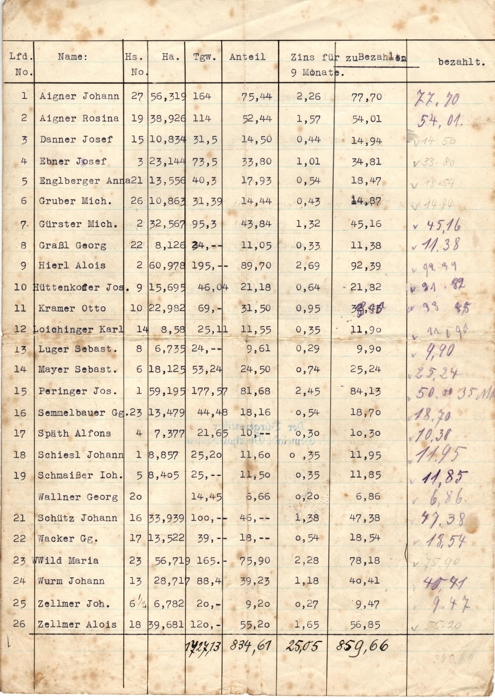 Lfd. Name: Hs. Ha. Tgw. Anteil Zins für zuBezahlen bezahlt.
No. No. 9 Monate.
1 Aigner Johann 27 56,319 164 75,44 2,26 77,70 77,70
2 Aigner Rosina 19 38,926 114 52,44 1,57 54,01 54,01.
3 Danner Josef 15 10,834 31,5 14,50 0,44 14,94 v
4 Ebner Josef 3 23,144 73,5 33,80 1,01 34,81 v 33.80
5 Englberger Anna 21 13,556 40,3 17,93 0,54 18,47 v
6 Gruber Mich. 26 10,863 31,39 14,44 0,43 14,87 v
7 Gürster Mich. 2 32,567 95,3 43,84 1,32 45,16 v 45,16
8 Graßl Georg 22 8,126 24,-- 11,05 0,33 11,38 v 11.38
9 Hierl Alois 2 60,978 195,-- 89,70 2,69 92,39 v
10 Hüttenkofer Jos. 9 15,695 46,04 21,18 0,64 21,82 v 82
11 Kramer Otto 10 22,982 69,- 31,50 0,95 v
12 Loichinger Karl 14 8,58 25,11 11,55 0,35 11,90 v
13 Luger Sebast. 8 6,735 24,-- 9,61 0,29 9,90 v 9,90
14 Mayer Sebast. 6 18,125 53,24 24,50 0,74 25,24 25,24
15 Peringer Jos. 1 59,195 177,57 81,68 2,45 84,13 50. 35
16 Semmelbauer Gg. 23 13,479 44,48 18,16 0,54 18,70 18,70
17 Späth Alfons 4 7,377 21,65 10,-- 0,30 10,30 10,30
18 Schiesl Johann 1 8,857 25,20 11,60 0 ,35 11,95 11,95
19 Schmaißer Ioh. 5 8,405 25,-- 11,50 0,35 11,85 11,85
Wallner Georg 20 14,45 6,66 0,20 6,86 v 6,86.
21 Schütz Johann 16 33,939 100,-- 46,-- 1,38 47,38 47,38
22 Wacker Gg. 17 13,522 39,-- 18,-- 0,54 18,54 v 18,54
23 WWild Maria 23 56,719 165.- 75,90 2,28 78,18 v 75,90
24 Wurm Johann 13 28,717 88,4 39,23 1,18 40,41 40,41
25 Zellmer Joh. 6½ 6,782 20,- 9,20 0,27 9,47 9.47
26 Zellmer Alois 18 39,681 120,- 55,20 1,65 56,85 v
1727,13 834,61 25,05 859,66